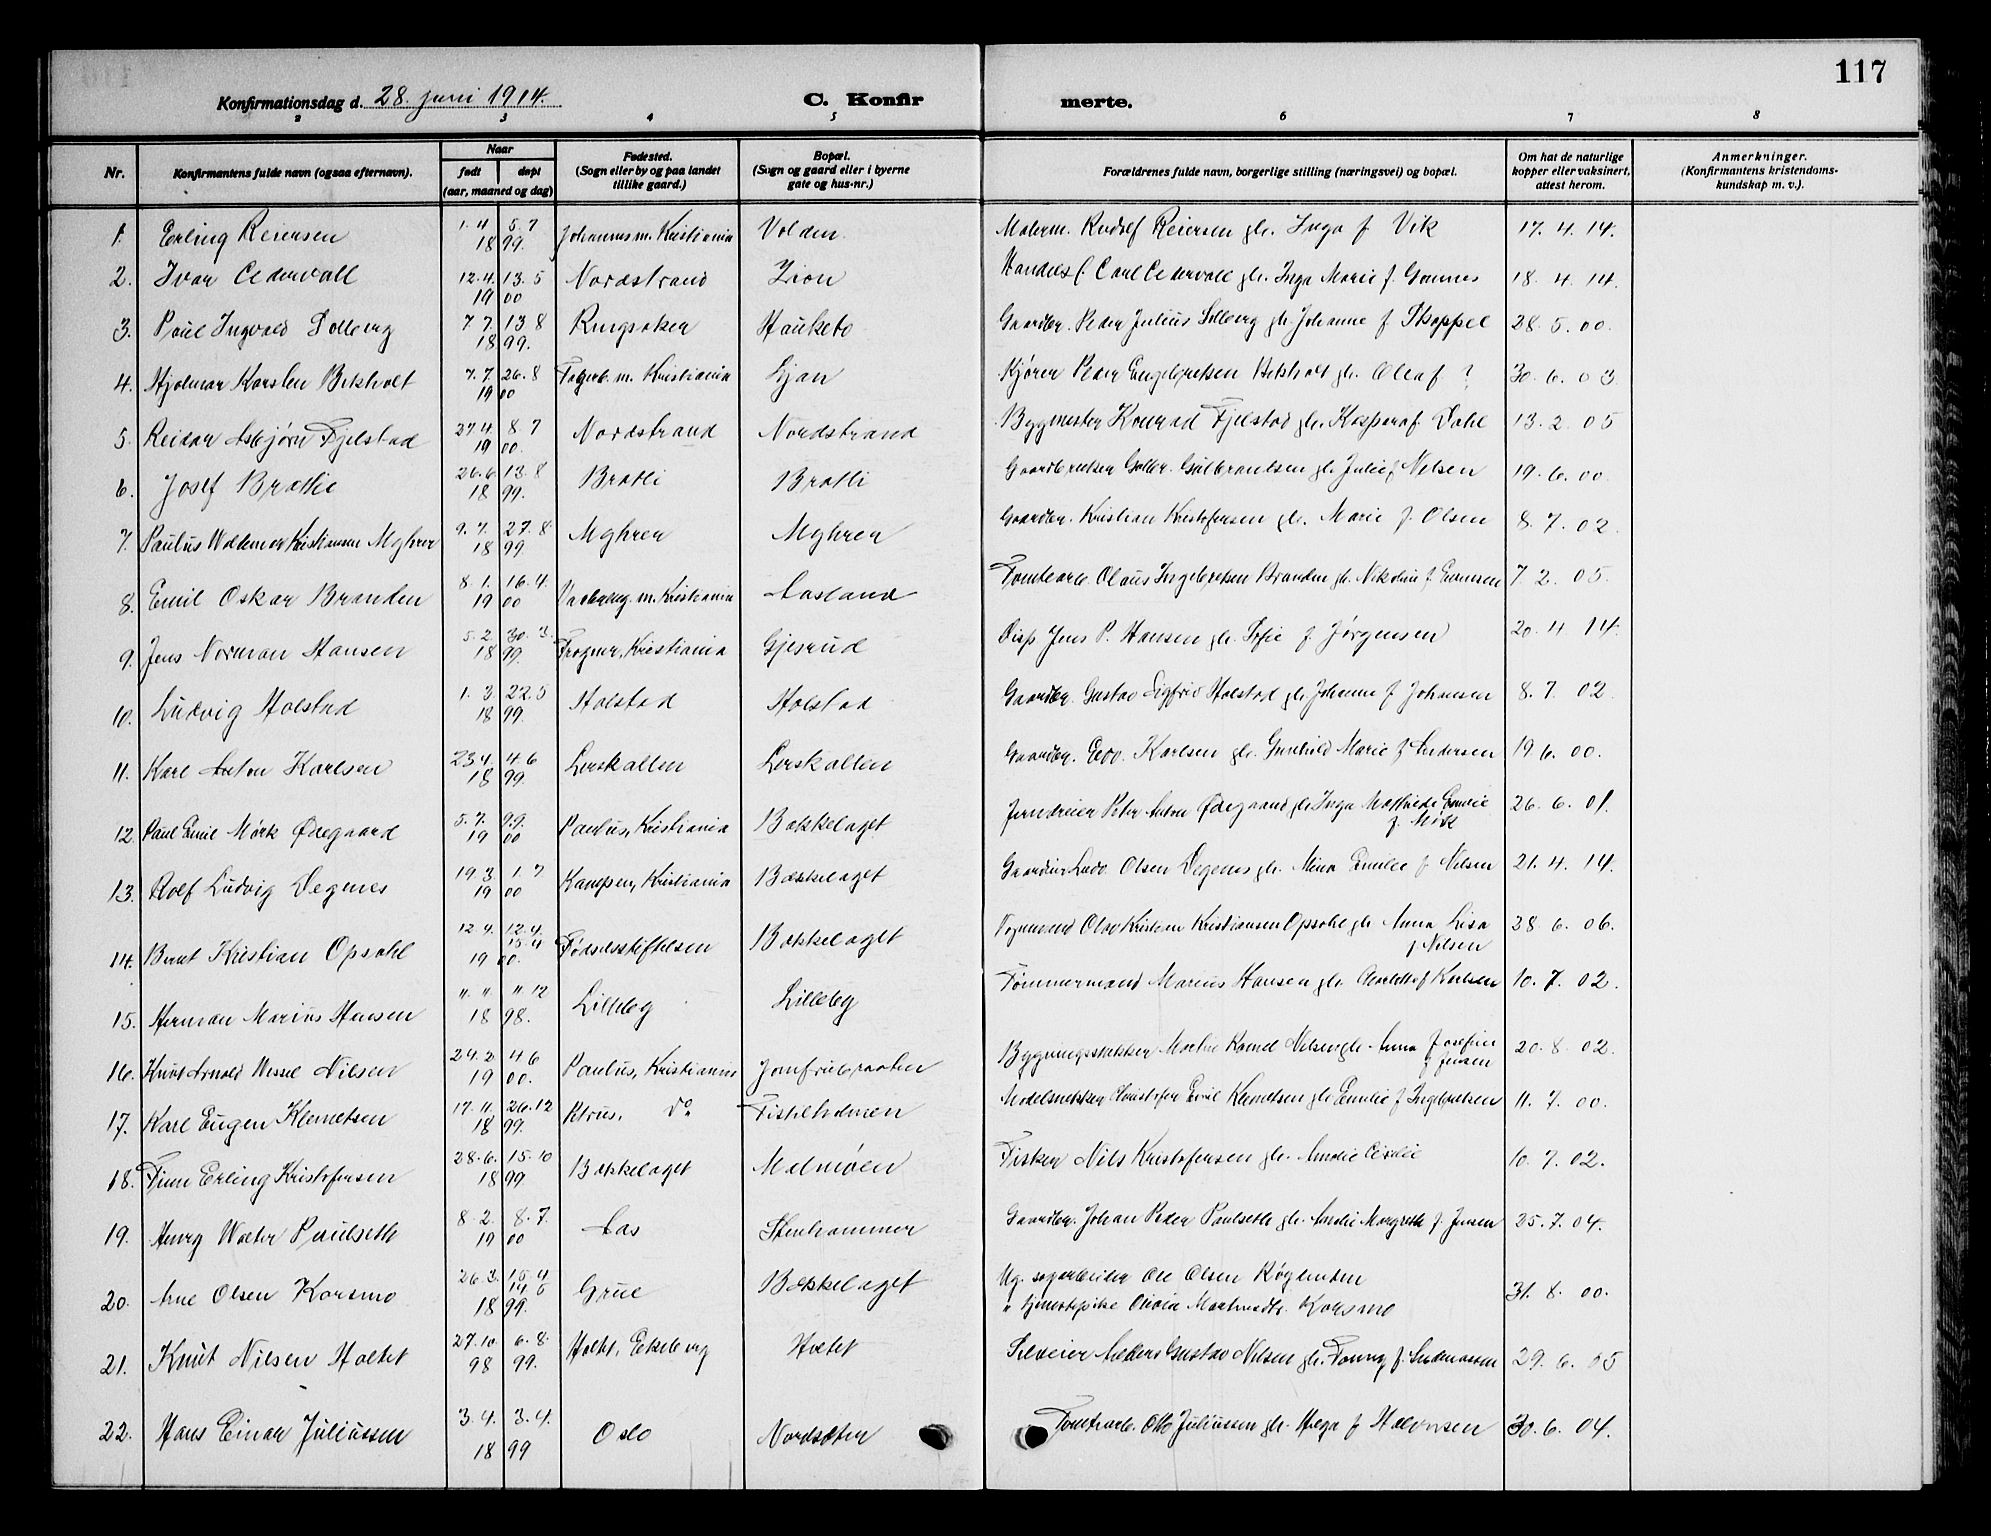 117
Konfirmationsdag d. 28. juni 1914.
C. Konfir merte.
2 3 4 5 6 7 8
Nr.
Konfirmantens fulde navn (ogsaa efternavn).
Naar
født døpt
(aar, maaned og dag)
Fødested.
(Sogn eller by og paa landet
tillike gaard.)
Bopæl.
(Sogn og gaard eller i byerne
gate og hus-nr.)
Forældrenes fulde navn, borgerlige stilling (næringsvei) og bopæl.
Om hat de naturlige
kopper eller vaksinert,
attest herom.
Anmerkninger.
(Konfirmantens kristendoms-
kundskap m. v.).
1. Erling Reiersen 1. 4 5. 7 18 99. Johannes m. Kristiania Volden Malerm. Rudolf Reiersen gh. Inga f Vik 17. 4. 14.
2. Ivar Cedervall 12. 4. 13. 5 19 00 Nordstrand Zion Handelsf. Carl Cedervall gh. Inga Marie f. 18. 4. 14.
3. Paul Ingvald Solberg 7 7. 13 8 18 99. Ringsaker Hauketo Gaardbr. Peder Julius Solberg gh. Johanne f. Skappel 28. 5. 00.
4. Hjalmar Karsten 7. 7. 26. 8 19 00 m. Kristiania Ljan Kjører Peder Engebretsen gh. Olea f ? 30. 6. 03
5. Reidar Asbjørn Fjelstad 27 4. 8. 7 19 00. Nordstrand Nordstrand Bygmester Konrad Fjelstad gh. f. Dahl 13. 2. 05
6. Josef Bratlie 26. 6. 13. 8 18 99. Bratli Bratli Gulbrandsen gh. Julie f Nilsen 19. 6. 00
7. Paulus Kristiansen Myhrer 9. 7. 27. 8 18 99 Myhrer Myhrer Gaardbr. Kristian Kristofersen gh. Marie f. Olsen 8. 7. 02.
8. Emil Oskar Branden 8. 1. 16. 4. 19 00 m. Kristiania Aasland Tomtearb. Claus Ingebretsen Branden gh. Nikoline f. 7 2. 05.
9. Jens Norman Hansen 5. 2. 30. 3. 18 99. Frogner, Kristiania Gjesrud Disp Jens P. Hansen gh. Sofie f. Jørgensen 20. 4. 14.
10. Ludvig Holstad 1. 3. 22. 5 18 99. Holstad Holstad Gaardbr. Gustav Sigfrid Holstad gh. Johanne f Johansen 8. 7. 02.
11. Karl Anton Karlsen 23 4. 4 6 18 99. Lerskallen Lerskallen Gaardbr. Edv. Karlsen gh. Gunhild Marie f Andersen 19 6. 00.
12. Paul Emil Mørk Ødegaard 5. 7. 9. 9. 19 00 Paulus, Kristiania Bækkelaget Jerndreier Peter Anton Ødegaard gh. Inga Mathilde Emilie f. Mørk 26. 6. 01.
13. Rolf Ludvig Degnes 19 3. 1. 7 19 00 Kampen, Kristiania Bækkelaget Ludv. Olsen Degnes gh. Mina Emilie f. Nilsen 21. 4. 14.
14. Bernt Kristian Opsahl 12. 4. 12. 4. 15 4 19 00. Fødselsstiftelsen Bækkelaget Vognmand Olav Kristian Kristiansen Opsahl gh. Anna Lisa f Nilsen 28. 6. 06.
15. Herman Marius Hansen 11. 11. 11 12 18 98. Lilleby Lilleby Tømmermand Marius Hansen gh. f Karlsen 10. 7. 02.
16. Knut Arnold Wessel Nilsen 24. 2. 4 6 19 00. Paulus, Kristiania Jomfrubraaten Bygningssnekker Nilsen gh. Anna Josefine f. Jensen 20. 8. 02.
17. Karl Eugen Klemetsen 17. 11. 26. 12 18 99. Petrus, do Fiskeholmen Modelsnekker Christofer Emil Klemetsen gh Emilie f Ingebretsen 11. 7. 00.
18. Finn Erling Kristofersen 28. 6. 15. 10 18 99 Bækkelaget Malmøen Fisker Nils Kristofersen gh. Amalie 10. 7. 02.
19. Henry Walter Paulseth 8. 2. 8. 7. 19 00 Aas Stenhammer Gaardbr. Johan Peder Paulseth gh. Amalie Margrethe f. Jensen 25. 7. 04.
20. Arne Olsen Korsmo 26. 3. 15. 4 14 5 18 99. Grue Bækkelaget Ug. sagarbeider Ole Olsen
" tjenestepike Olivia Korsmo 31. 8. 00.
21. Knut Nilsen Holtet 27. 10 6. 8. 98 99. Holtet, Ekeberg Holtet Anders Gustav Nilsen gh. Fanny f. 29. 6. 05
22. Hans Einar Juliussen 3. 4. 3. 4. 18 99 Oslo Nordsæter Tomtearb. Otto Juliussen gh. Helga f Halvorsen 30. 6. 04.